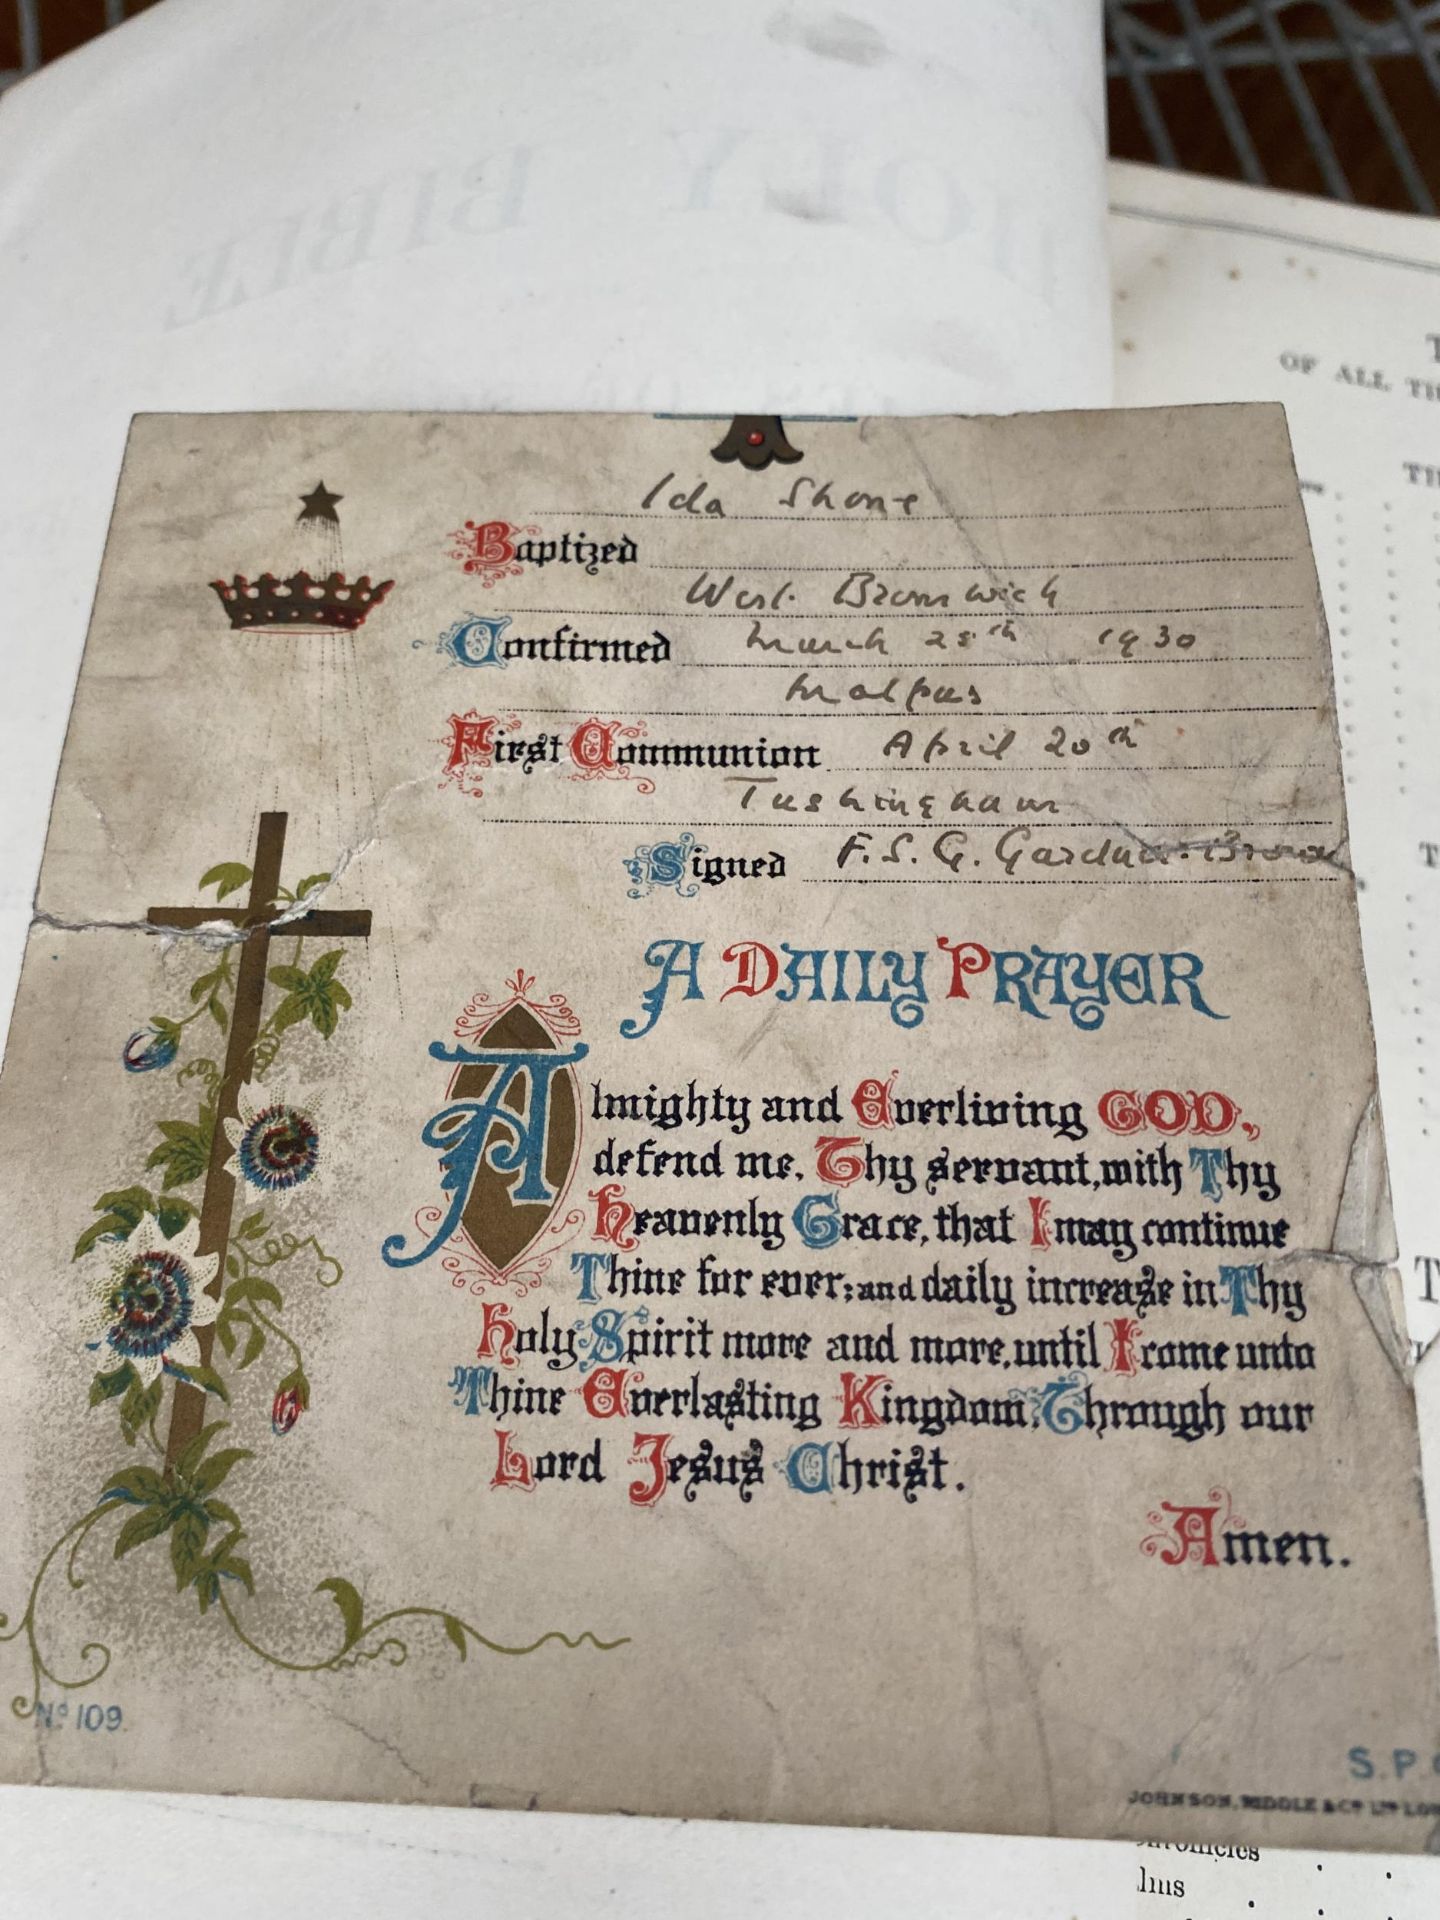 HOLY BIBLE
OF ALL TH
Ida Shone
Baptized
West Bromwich
Confirmed March 25th 1930
Malpas
First Communion April 20th
Tushingham
Signed F. S. G. Gardner-Brown
A DAILY PRAYER
Almighty and Everliving GOD,
defend me, Thy servant, with Thy
Heavenly Grace, that I may continue
Thine for ever; and daily increase in Thy
Holy Spirit more and more, until I come unto
Thine Everlasting Kingdom, Through our
Lord Jesus Christ.
Amen.
No 109
S.P.
JOHNSON, RIDDLE & Co LTD LO